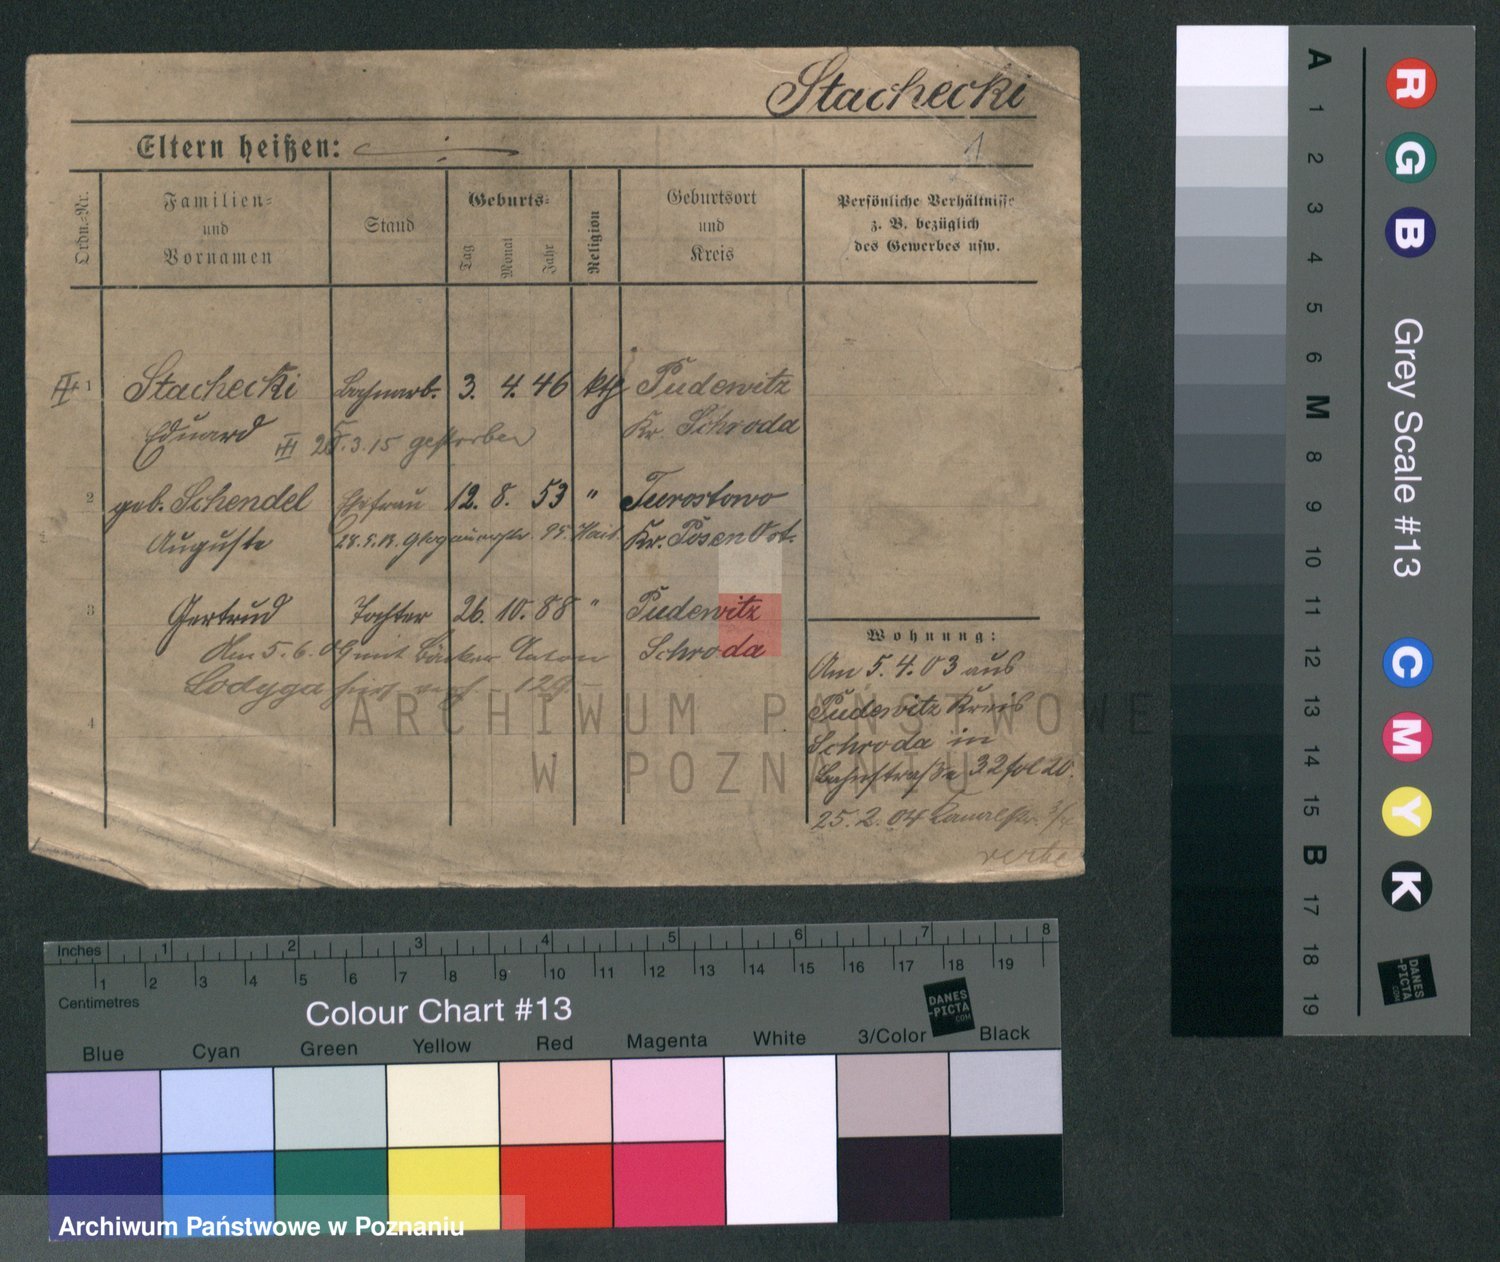 Stachecki
Eltern heißen:
1
Ordn.-Nr.
Familien-
und
Vornamen
Stand
Geburts-
Tag
Monat
Jahr
Religion
Geburtsort
und
Kreis
Persönliche Verhältnisse
z. B. bezüglich
des Gewerbes usw.
1
Stachecki
3. 4. 46 kth
Pudewitz
Eduard
25.3.15 gestorben
Kr. Schroda
2
geb. Schendel Ehefrau 12. 8. 53 "
Turostowo
Auguste
Kr. Posen Ost.
3
Gertrud Tochter 26. 10. 88 "
Pudewitz
Am 5.6.09 mit Bäcker Anton
Schroda
Lodyga
4
Wohnung:
Am 5.4.03 aus
Pudewitz Kreis
Schroda in
Bahnstraße 32 fol 20.
25.2.04
ARCHIWUM PAŃSTWOWE
W POZNANIU
Inches 1 2 3 4 5 6 7 8
1 2 3 4 5 6 7 8 9 10 11 12 13 14 15 16 17 18 19
Centimetres
Colour Chart #13
DANES
-PICTA
.COM
Blue Cyan Green Yellow Red Magenta White 3/Color Black
A 1 2 3 4 5 6 M 8 9 10 11 12 13 14 15 B 17 18 19
R G B
Grey Scale #13
C M Y K
DANES
-PICTA
.COM
Archiwum Państwowe w Poznaniu